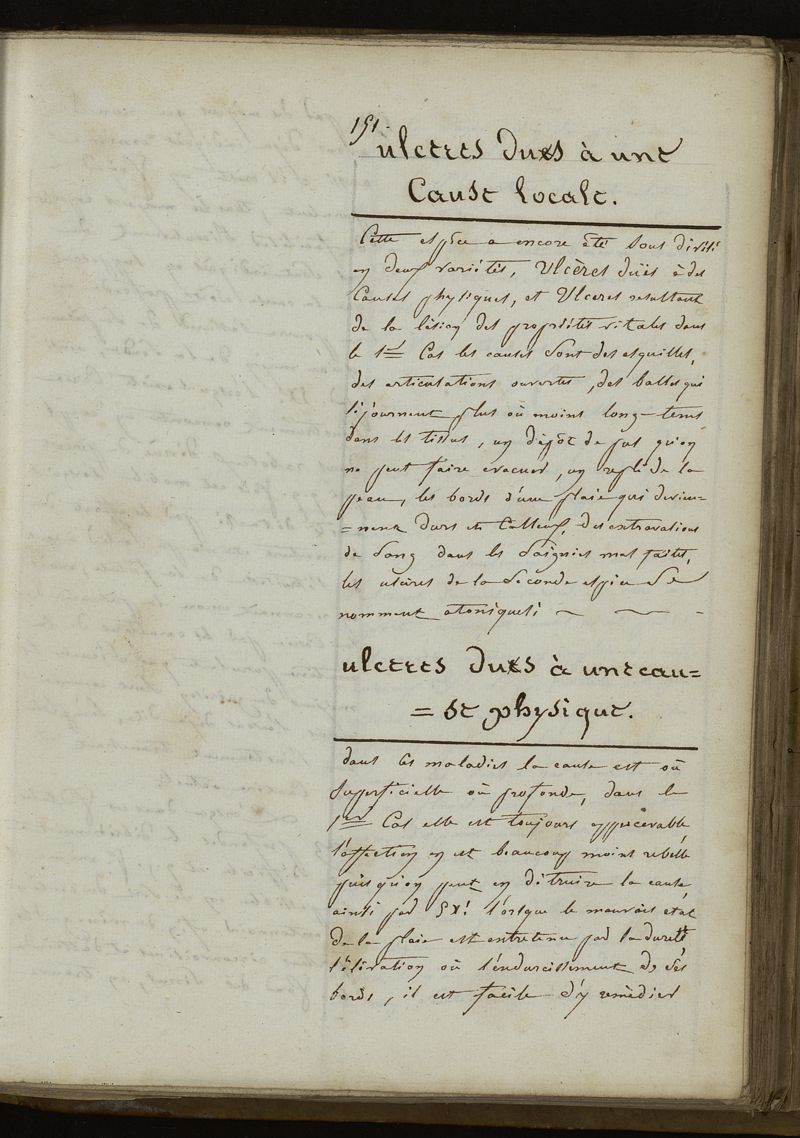 151
ulceres dues à une
Cause locale.
Cette espèce a encore été sous divisé
en deux variétés, Ulcères dües à des
Causes physiques, et Ulceres resultant
de la lésion des propriétés vitales dans
le 1er Cas les causes sont des esquilles,
des articulations ouvertes, des balles qui
séjournent plus où moins long-tems
dans les tissus, un dépôt de pus qu'on
ne peut faire evacuer, un repli de la
peau, les bords d'une plaie qui devien-
=nent durs et Calleux, des extravations
de sang dans les saignées mal faites,
les ulcères de la seconde espèce se
nomment atoniques;
ulceres dues à une cau=
=se physique.
dans ces maladies la cause est où
superficielle où profonde, dans le
1er Cas elle est toujours appercevable
l'affection en est beaucoup moins rebelle
puisqu'on peut en détruire la cause,
ainsi par EX: lorsque le mauvais etat
de la plaie est entretenu par la dureté
l'élévation où l'endurcissement de ses
bords, il est facile d'y remèdier